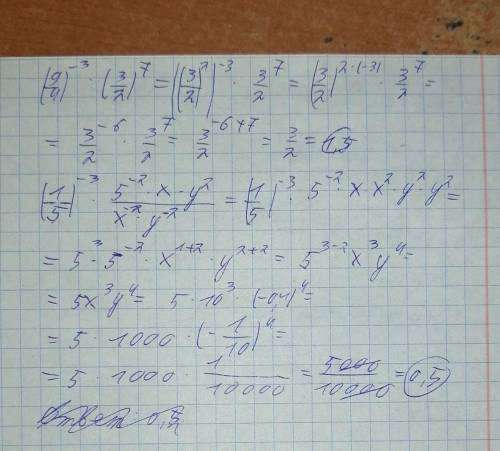 (9/4)^-3 · (3/2)^7 = ((3/2)^2)^-3 · 3/2^7 = (3/2)^2·(-3) · 3/2^7 =
= 3/2^-6 · 3/2^7 = 3/2^-6+7 = 3/2 = 1,5
(1/5)^-3 · 5^-2 · x · y^2 / x^-2 · y^-2 = (1/5)^-3 · 5^-2 · x x^2 · y^2 · y^2 =
= 5^3 · 5^-2 · x^1+2 · y^2+2 = 5^3-2 x^3 y^4 =
= 5x^3y^4 = 5 · 10^3 · (-0,1)^4 =
= 5 · 1000 · (-1/10)^4 =
= 5 · 1000 · 1/10000 = 5000/10000 = 0,5
Ответ: 0,5